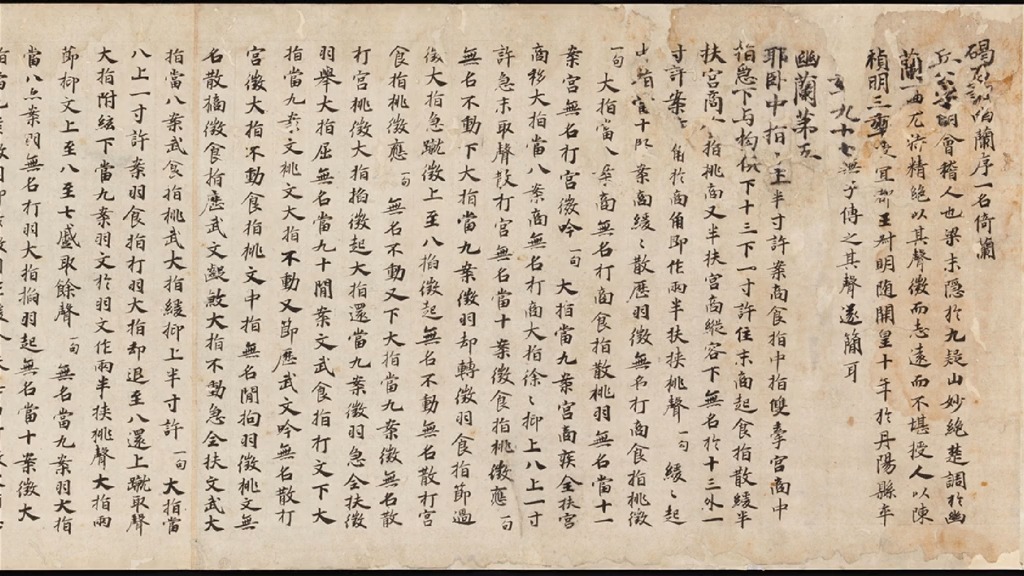 碣石調幽蘭序一名倚蘭
丘公字明會稽人也梁末隱於九疑山妙絕楚調於幽
蘭一曲尤特精絕以其聲微而志遠而不堪授人以陳
禎明三年授宜都王叔明隨開皇十年於丹陽縣卒
九十七無子傳之其聲遂簡耳
幽蘭第五
耶卧中指〻上半寸許案商食指中指雙牽宮商中
指急下与拘俱下十三下一寸許住末商起食指散緩半
扶宮商食指挑商又半扶宮商縱容下無名於十三外一
寸許案商角於商角即作兩半扶挾挑聲一句 緩〻起
指當十案商緩〻散歷羽徵無名打商食指挑徵
一句 大指當八案商無名打商食指散挑羽無名當十一
案宮無名打宮徵吟一句 大指當九案宮商疾全扶宮
商移大指當八案商無名打商大指徐〻抑上八上一寸
許急末取聲散打宮無名當十案徵食指挑徵應一句
無名不動下大指當九案徵羽却轉徵羽食指節過
後大指急蹴徵上至八掐徵起無名不動無名散打宮
食指挑徵應一句 無名不動又下大指當九案徵無名散
打宮桃徵大指掐徵起大指還當九案徵羽急全扶徵
羽舉大指屈無名當九十間案文武食指打文下大
指當九案文桃文大指不動又節歷武文吟無名散打
宮徵大指不動食指桃文中指無名間拘羽徵桃文無
名散摘徵食指歷武文大指不動急全扶文武大
指當八案武食指桃武大指緩抑上半寸許一句 大指當
八上一寸許案羽食指打羽大指却退至八還上蹴取聲
大指附絃下當九案羽文於羽文作兩半扶桃聲大指兩
節抑文上至八至七慼取餘聲一句 無名當九案羽大指
當八上案羽無名打羽大指掐羽起無名當十案徵大